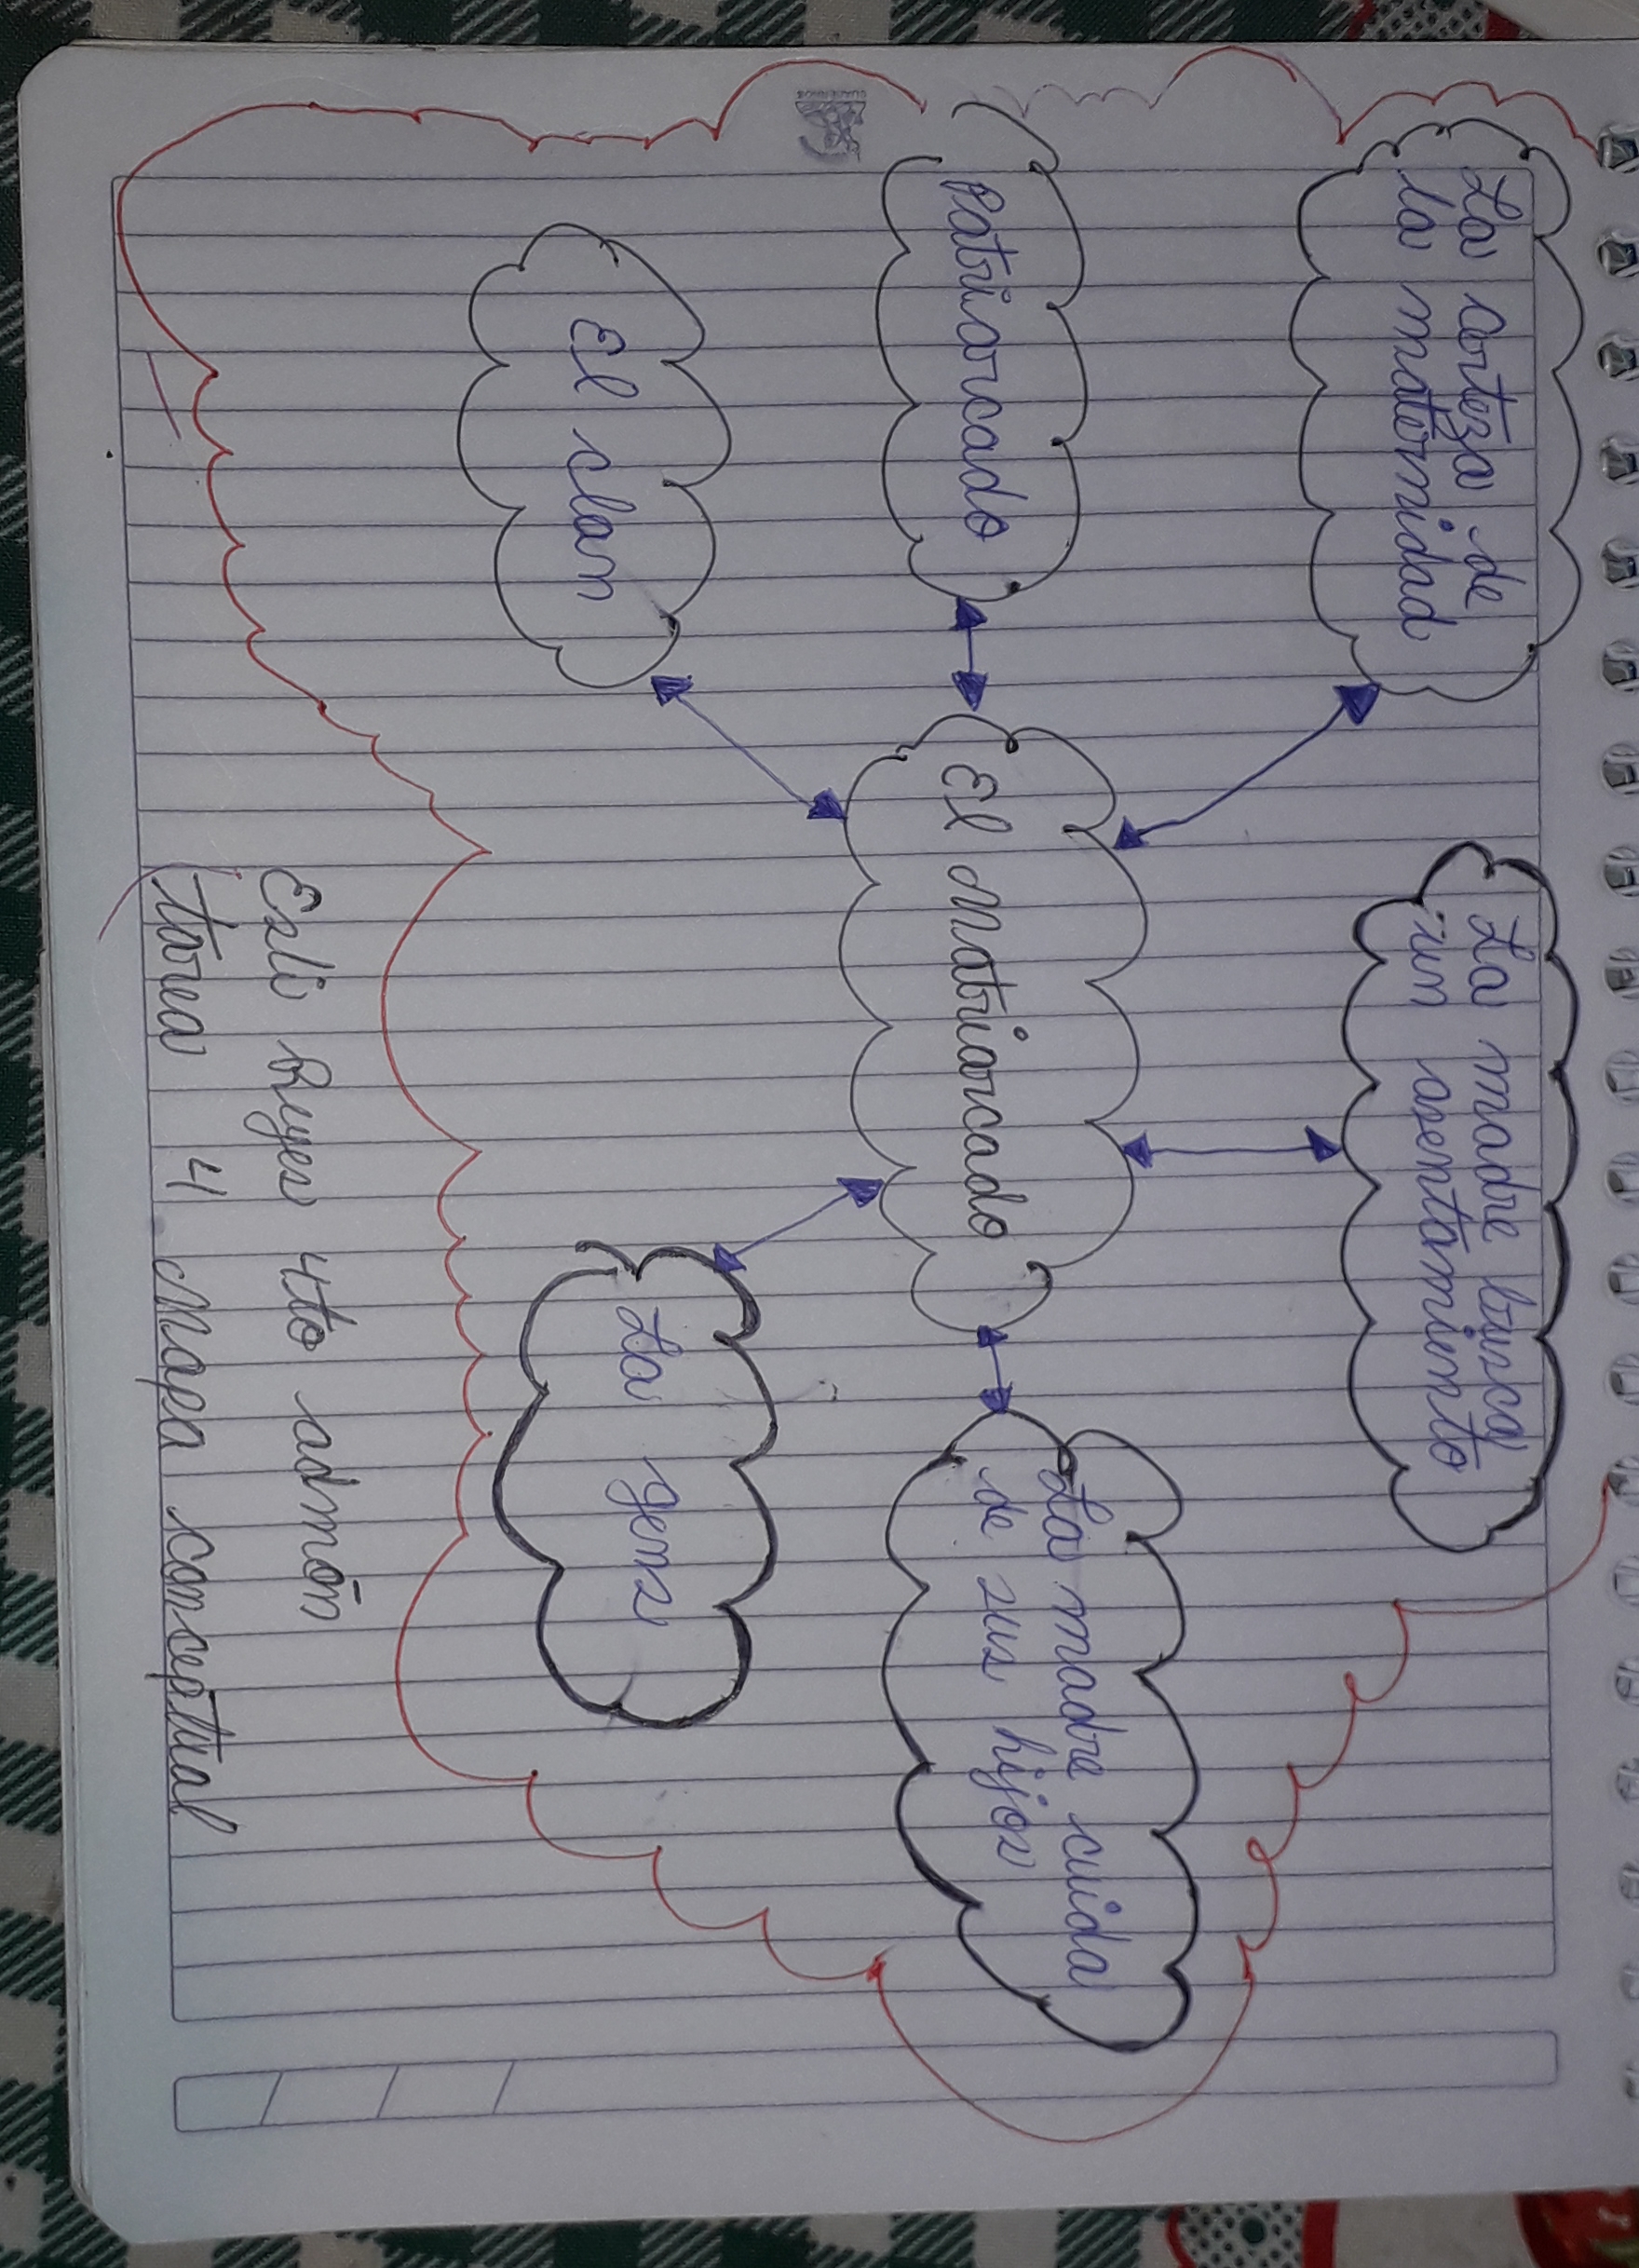 La certeza de
la maternidad
La madre busca
un asentamiento
Patriarcado
El Matriarcado
La madre cuida
de sus hijos
El clan
La gens
Esli Reyes 4to admón
tarea 4 Mapa conceptual